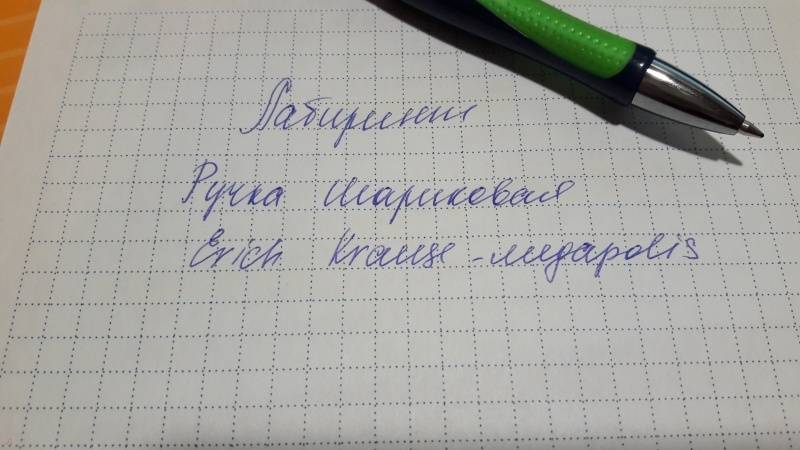 Лабиринт
Ручка шариковая
Erich Krause - megapolis